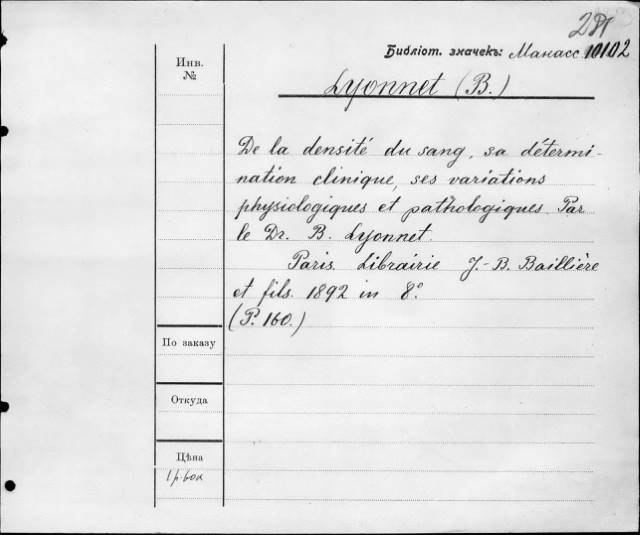 281
Библіот. значекъ: Манасс 10102
Инв.
№
Lyonnet (B.)
De la densité du sang, sa détermi-
nation clinique, ses variations
physiologiques et pathologiques. Par
le Dr. B. Lyonnet.
Paris. Librairie J.-B. Baillière
et fils. 1892 in 8°.
(P. 160.)
По заказу
Откуда
Цѣна
1 р. 60к